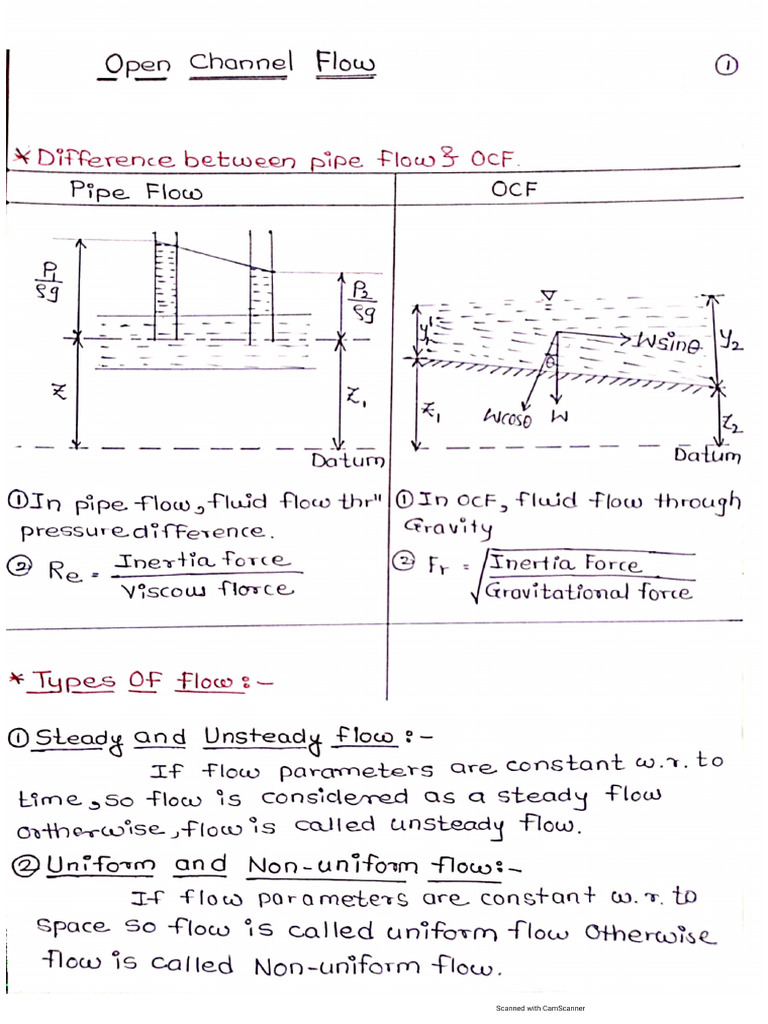 Open Channel Flow
①
* Difference between pipe flow & OCF.
Pipe Flow
OCF
P₁/ρg
P₂/ρg
Z
Z₁
Datum
y₁
Z₁
θ
Wsinθ
Wcosθ
W
y₂
Z₂
Datum
① In pipe flow, fluid flow thr"
pressure difference.
② Re = Inertia force
Viscous florce
① In OCF, fluid flow through
Gravity
② Fr = √Inertia Force
Gravitational force
* Types Of flow:-
① Steady and Unsteady flow:-
If flow parameters are constant w.r. to
time, so flow is considered as a steady flow
Ortherwise, flow is called unsteady flow.
② Uniform and Non-uniform flow:-
If flow parameters are constant w.r. to
Space so flow is called uniform flow Otherwise
flow is called Non-uniform flow.
Scanned with CamScanner